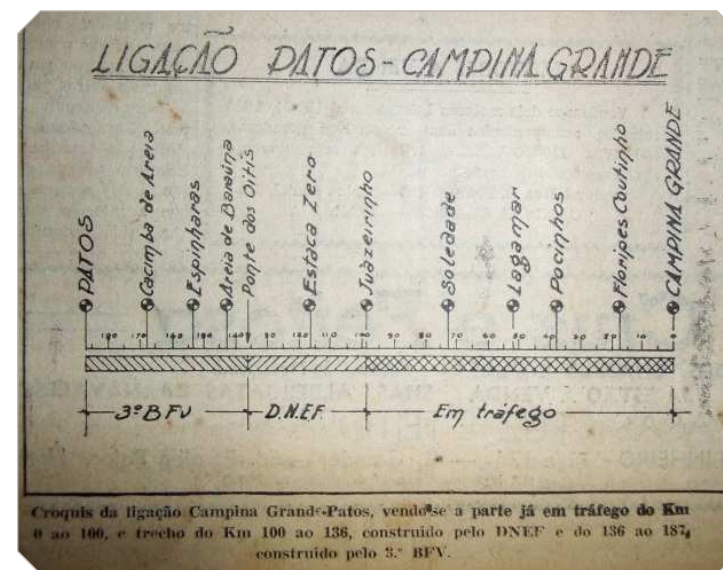 LIGAÇÃO PATOS-CAMPINA GRANDE
PATOS
Cacimba de Areia
Espinharas
Areia de Baraúna
Ponte dos Oitis
Estaca Zero
Juàzeirinho
Soledade
Lagamar
Pocinhos
Floripes Coutinho
CAMPINA GRANDE
180 170 160 150 140 120 110 100 90 80 70 60 50 40 30 20 10 0
3º BFV D.N.E.F. Em tráfego
Croquis da ligação Campina Grande-Patos, vendo-se a parte já em tráfego do Km
0 ao 100, e trecho do Km 100 ao 136, construido pelo DNEF e do 136 ao 187,
construido pelo 3.º BFV.